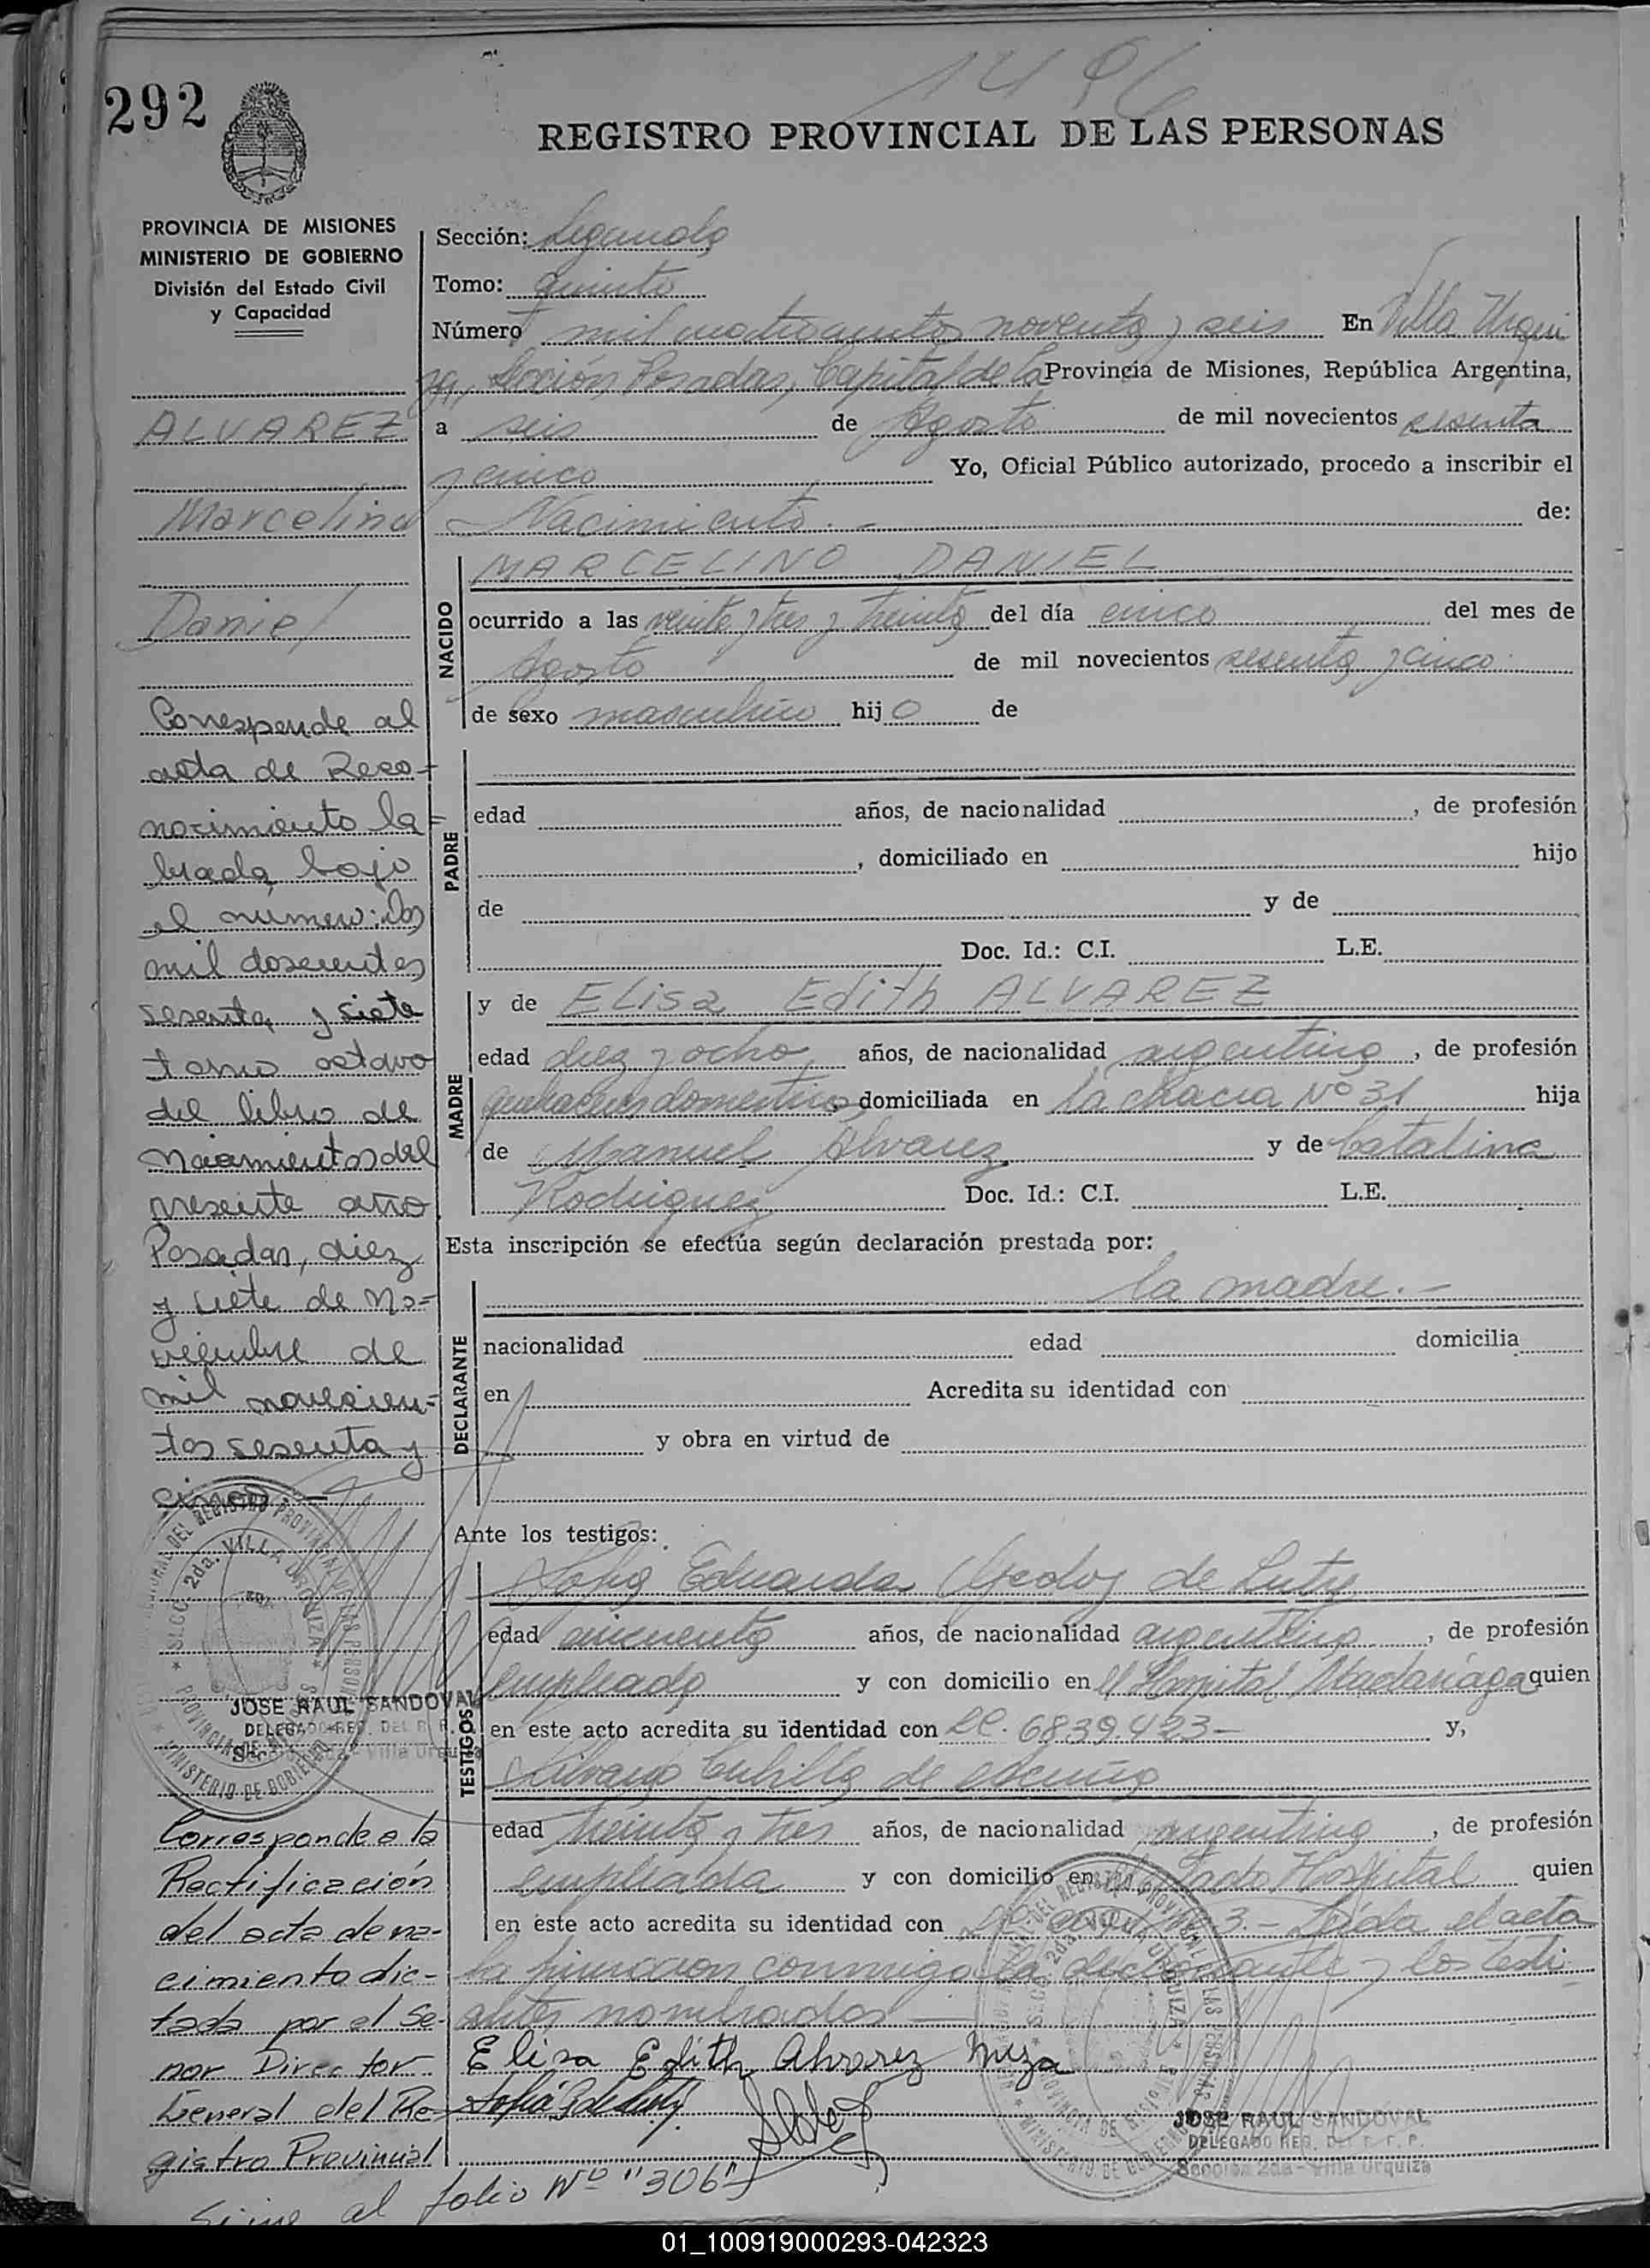 1496
292
REGISTRO PROVINCIAL DE LAS PERSONAS
PROVINCIA DE MISIONES
MINISTERIO DE GOBIERNO
División del Estado Civil
y Capacidad
ALVAREZ
Marcelino
Daniel
Corresponde al
acta de Reco-
nocimiento la=
brada bajo
el número: dos
mil doscientos
sesenta y siete
tomo octavo
del libro de
Nacimientos del
presente año
Posadas, diez
y siete de No=
viembre de
mil novecien=
tos sesenta y
cinco.—
JOSE RAUL SANDOVAL
DELEGADO REG. DEL R. P.
Corresponde a la
Rectificación
del acta de na-
cimiento dic-
tada por el Se-
nor Director
General del Re-
gistro Provincial
Sigue al folio Nº "306"
Sección: Segunda
Tomo: quinto
Número mil cuatrocientos noventa y seis En Villa Urqui
za, Sección Posadas, Capital de la Provincia de Misiones, República Argentina,
a seis de Agosto de mil novecientos sesenta
y cinco Yo, Oficial Público autorizado, procedo a inscribir el
Nacimiento.- de:
NACIDO
MARCELINO DANIEL
ocurrido a las veinte y tres y treinta del día cinco del mes de
Agosto de mil novecientos sesenta y cinco
de sexo masculino hijo de
PADRE
edad años, de nacionalidad , de profesión
, domiciliado en hijo
de y de
Doc. Id.: C.I. L.E.
MADRE
y de Elisa Edith ALVAREZ
edad diez y ocho años, de nacionalidad argentina, de profesión
quehaceres domesticos domiciliada en la chacra Nº 31 hija
de Manuel Alvarez y de Catalina
Rodriguez Doc. Id.: C.I. L.E.
Esta inscripción se efectúa según declaración prestada por:
DECLARANTE
la madre.-
nacionalidad edad domicilia
en Acredita su identidad con
y obra en virtud de
Ante los testigos:
TESTIGOS
Sofia Eduarda de Luty
edad cincuenta años, de nacionalidad argentina, de profesión
empleada y con domicilio en el Hospital Madariaga quien
en este acto acredita su identidad con LC. 6839.423- y,
de
edad treinta y tres años, de nacionalidad argentina, de profesión
empleada y con domicilio en Hospital quien
en este acto acredita su identidad con 3.- Leida el acta
la firmaron conmigo la declarante y los testi
antes nombrados
Elisa Edith Alvarez
JOSE RAUL SANDOVAL
DELEGADO REG. DEL R. P. P.
Sección 2da - Villa Urquiza
01_100919000293-042323